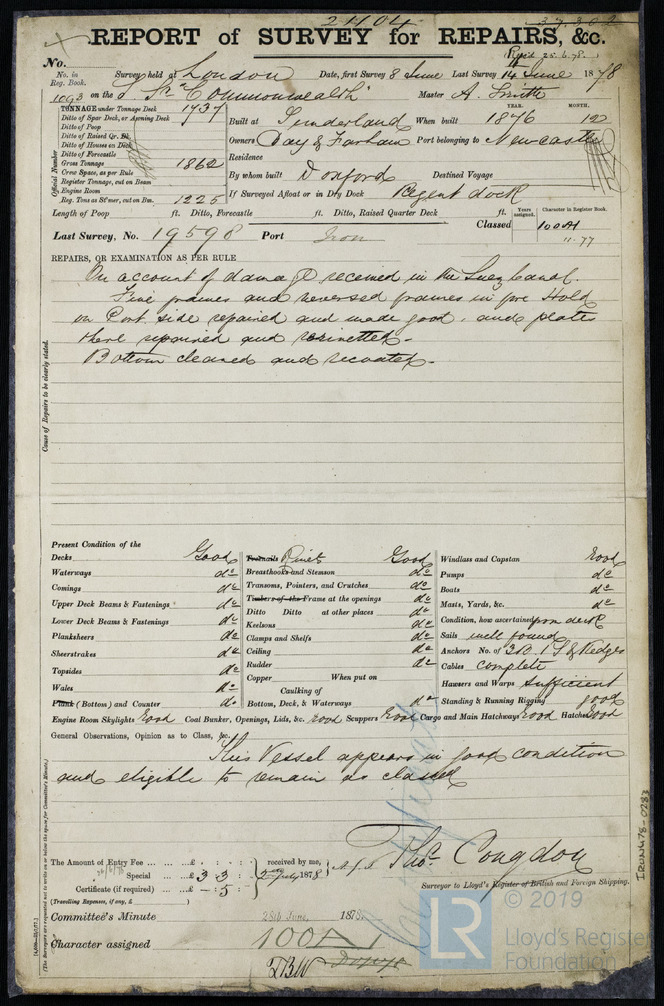 21404
37,302
REPORT of SURVEY for REPAIRS, &c.
Rec'd 25.6.78.
No.
No. in Reg. Book.
1093
Survey held at London Date, first Survey 8 June Last Survey 14 June 1878
on the S Sr "Commonwealth" Master A. Smith
TONNAGE under Tonnage Deck 1737
Ditto of Spar Deck, or Awning Deck
Ditto of Poop
Ditto of Raised Qr. Dk.
Ditto of Houses on Deck
Ditto of Forecastle
Gross Tonnage 1862
Crew Space, as per Rule
Register Tonnage, cut on Beam
Engine Room
Reg. Tons as St'mer, cut on Bm. 1225
Official Number
YEAR. MONTH.
Built at Sunderland When built 1876 12
Owners Day & Farham Port belonging to Newcastle
Residence
By whom built Doxford Destined Voyage
If Surveyed Afloat or in Dry Dock Regent dock
Length of Poop ft. Ditto, Forecastle ft. Ditto, Raised Quarter Deck ft.
Years assigned. Character in Register Book.
Classed 100A1
11.77
Last Survey, No. 19598 Port Iron
REPAIRS, OR EXAMINATION AS PER RULE
On account of damage received in the Suez Canal.
Five frames and reversed frames in fore Hold
on Port side repaired and made good. and plates
there repaired and rerivetted.
Bottom cleaned and recoated.
Cause of Repairs to be clearly stated.
Present Condition of the
Decks Good
Waterways do
Comings do
Upper Deck Beams & Fastenings do
Lower Deck Beams & Fastenings do
Planksheers do
Sheerstrakes do
Topsides do
Wales do
Plank (Bottom) and Counter do
Treenails Rivets Good
Breasthooks and Stemson do
Transoms, Pointers, and Crutches do
Timbers of the Frame at the openings do
Ditto Ditto at other places do
Keelsons do
Clamps and Shelfs do
Ceiling do
Rudder do
Copper When put on
Caulking of
Bottom, Deck, & Waterways do
Windlass and Capstan Good
Pumps do
Boats do
Masts, Yards, &c. do
Condition, how ascertained from deck
Sails well found
Anchors No. of 3B. 1S & Kedges
Cables complete
Hawsers and Warps Sufficient
Standing & Running Rigging good
Engine Room Skylights Good Coal Bunker, Openings, Lids, &c. Good Scuppers Good Cargo and Main Hatchways Good Hatches Good
General Observations, Opinion as to Class, &c.
This Vessel appears in good condition
and eligible to remain as classed
(The Surveyors are requested not to write on or below the space for Committee's Minute.)
The Amount of Entry Fee ... ... £ : :
Special ... £ 3 : 3 :
Certificate (if required) ... £ - : 5 :
(Travelling Expenses, if any, £ )
received by me,
2nd July 1878
Thos. Congdon
Surveyor to Lloyd's Register of British and Foreign Shipping.
Committee's Minute 28th June, 1878
Character assigned 100A1
IRONM78-0283
© 2019
LR
Lloyd's Register
Foundation